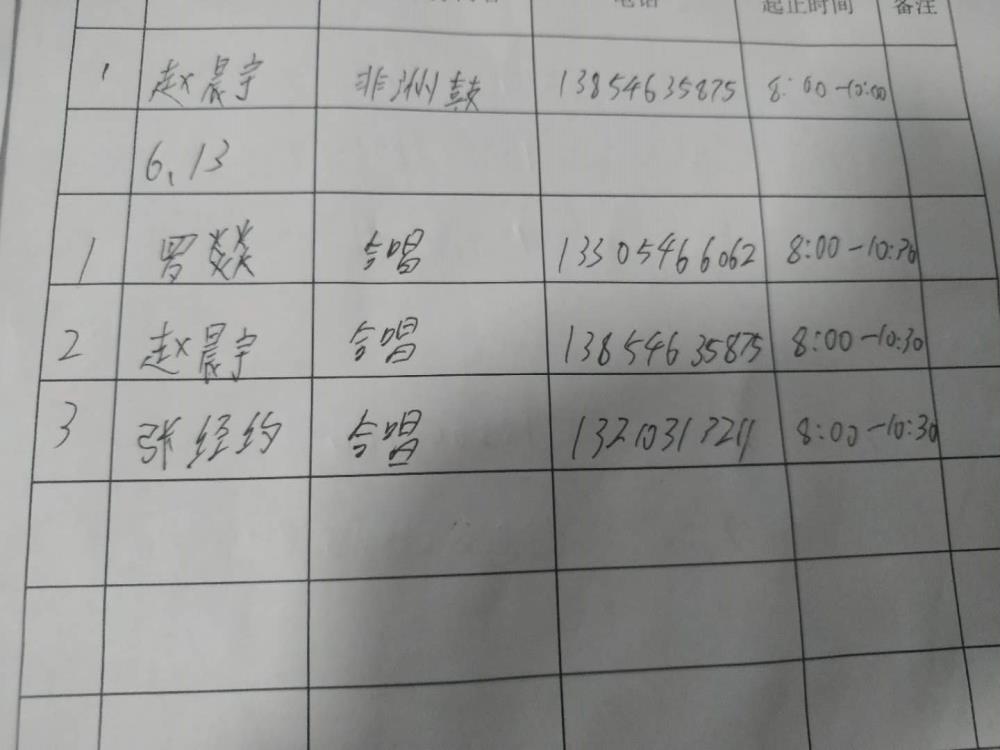 电话 起止时间 备注
1 赵晨宇 非洲鼓 13854635875 8:00-10:00
6.13
1 罗燚 合唱 13305466062 8:00-10:30
2 赵晨宇 合唱 13854635875 8:00-10:30
3 张经纬 合唱 8:00-10:30